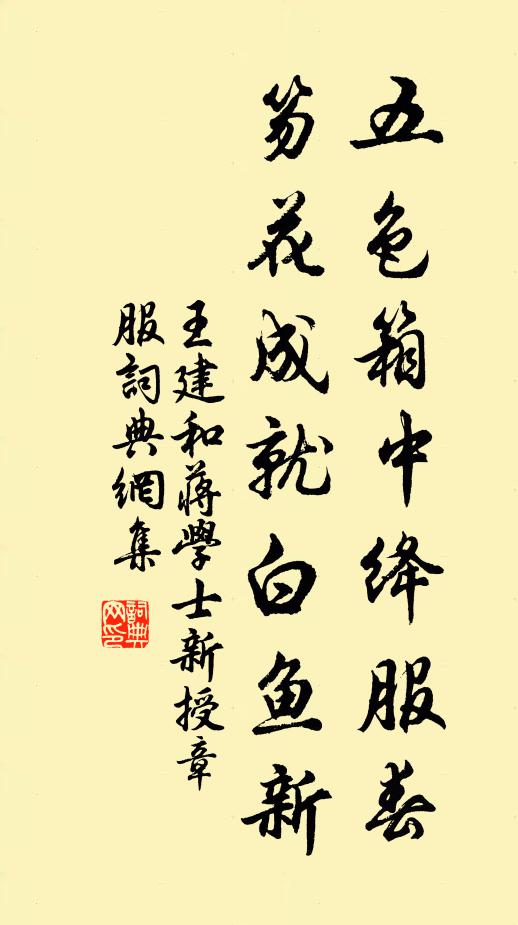 五色箱中絳服春
笏花成就白鱼新
王建和蔣學士新授章
服詞典網集
詞典
网印